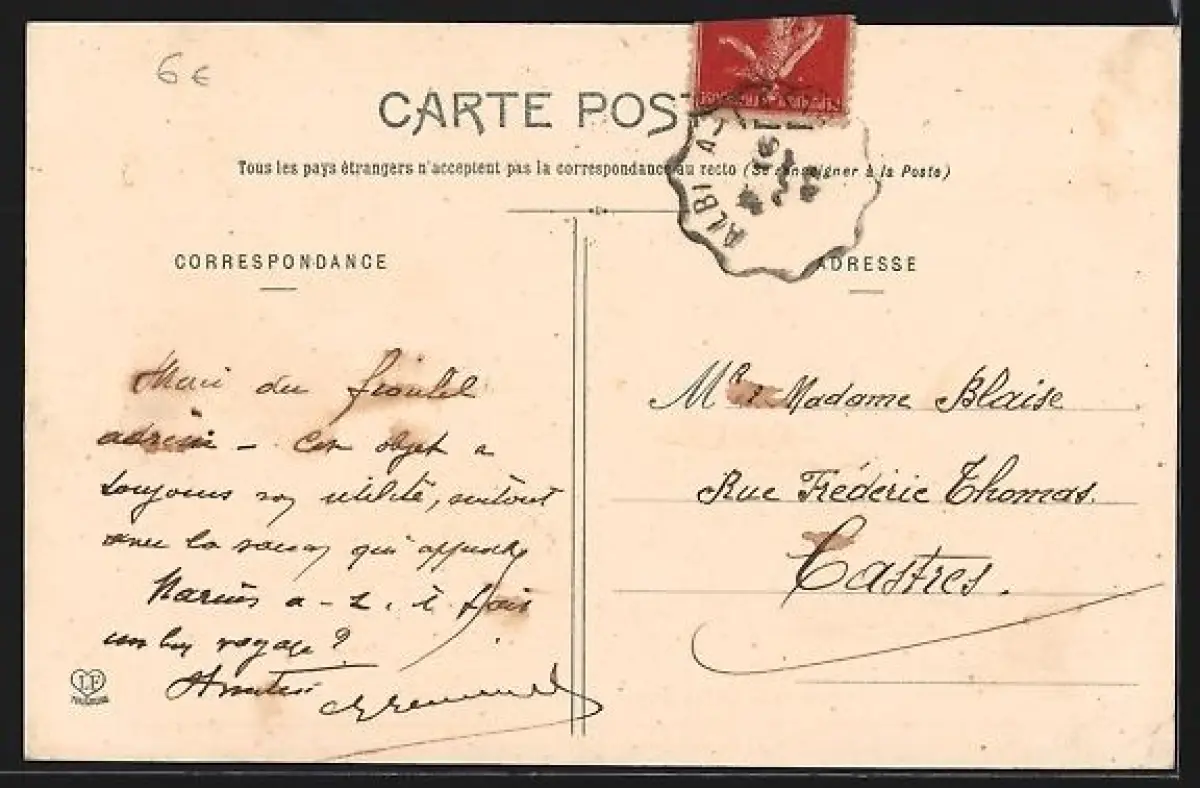 6 €
CARTE POS
Tous les pays étrangers n'acceptent pas la correspondance au recto (Se renseigner à la Poste)
ALBI
CORRESPONDANCE
ADRESSE
Merci du
Cet objet a
toujours son utilité, surtout
avec la saison qui approche
Marius a-t-il fait
un bon voyage ?
Mr & Madame Blaise
Rue Frédéric Thomas.
Castres.
LF